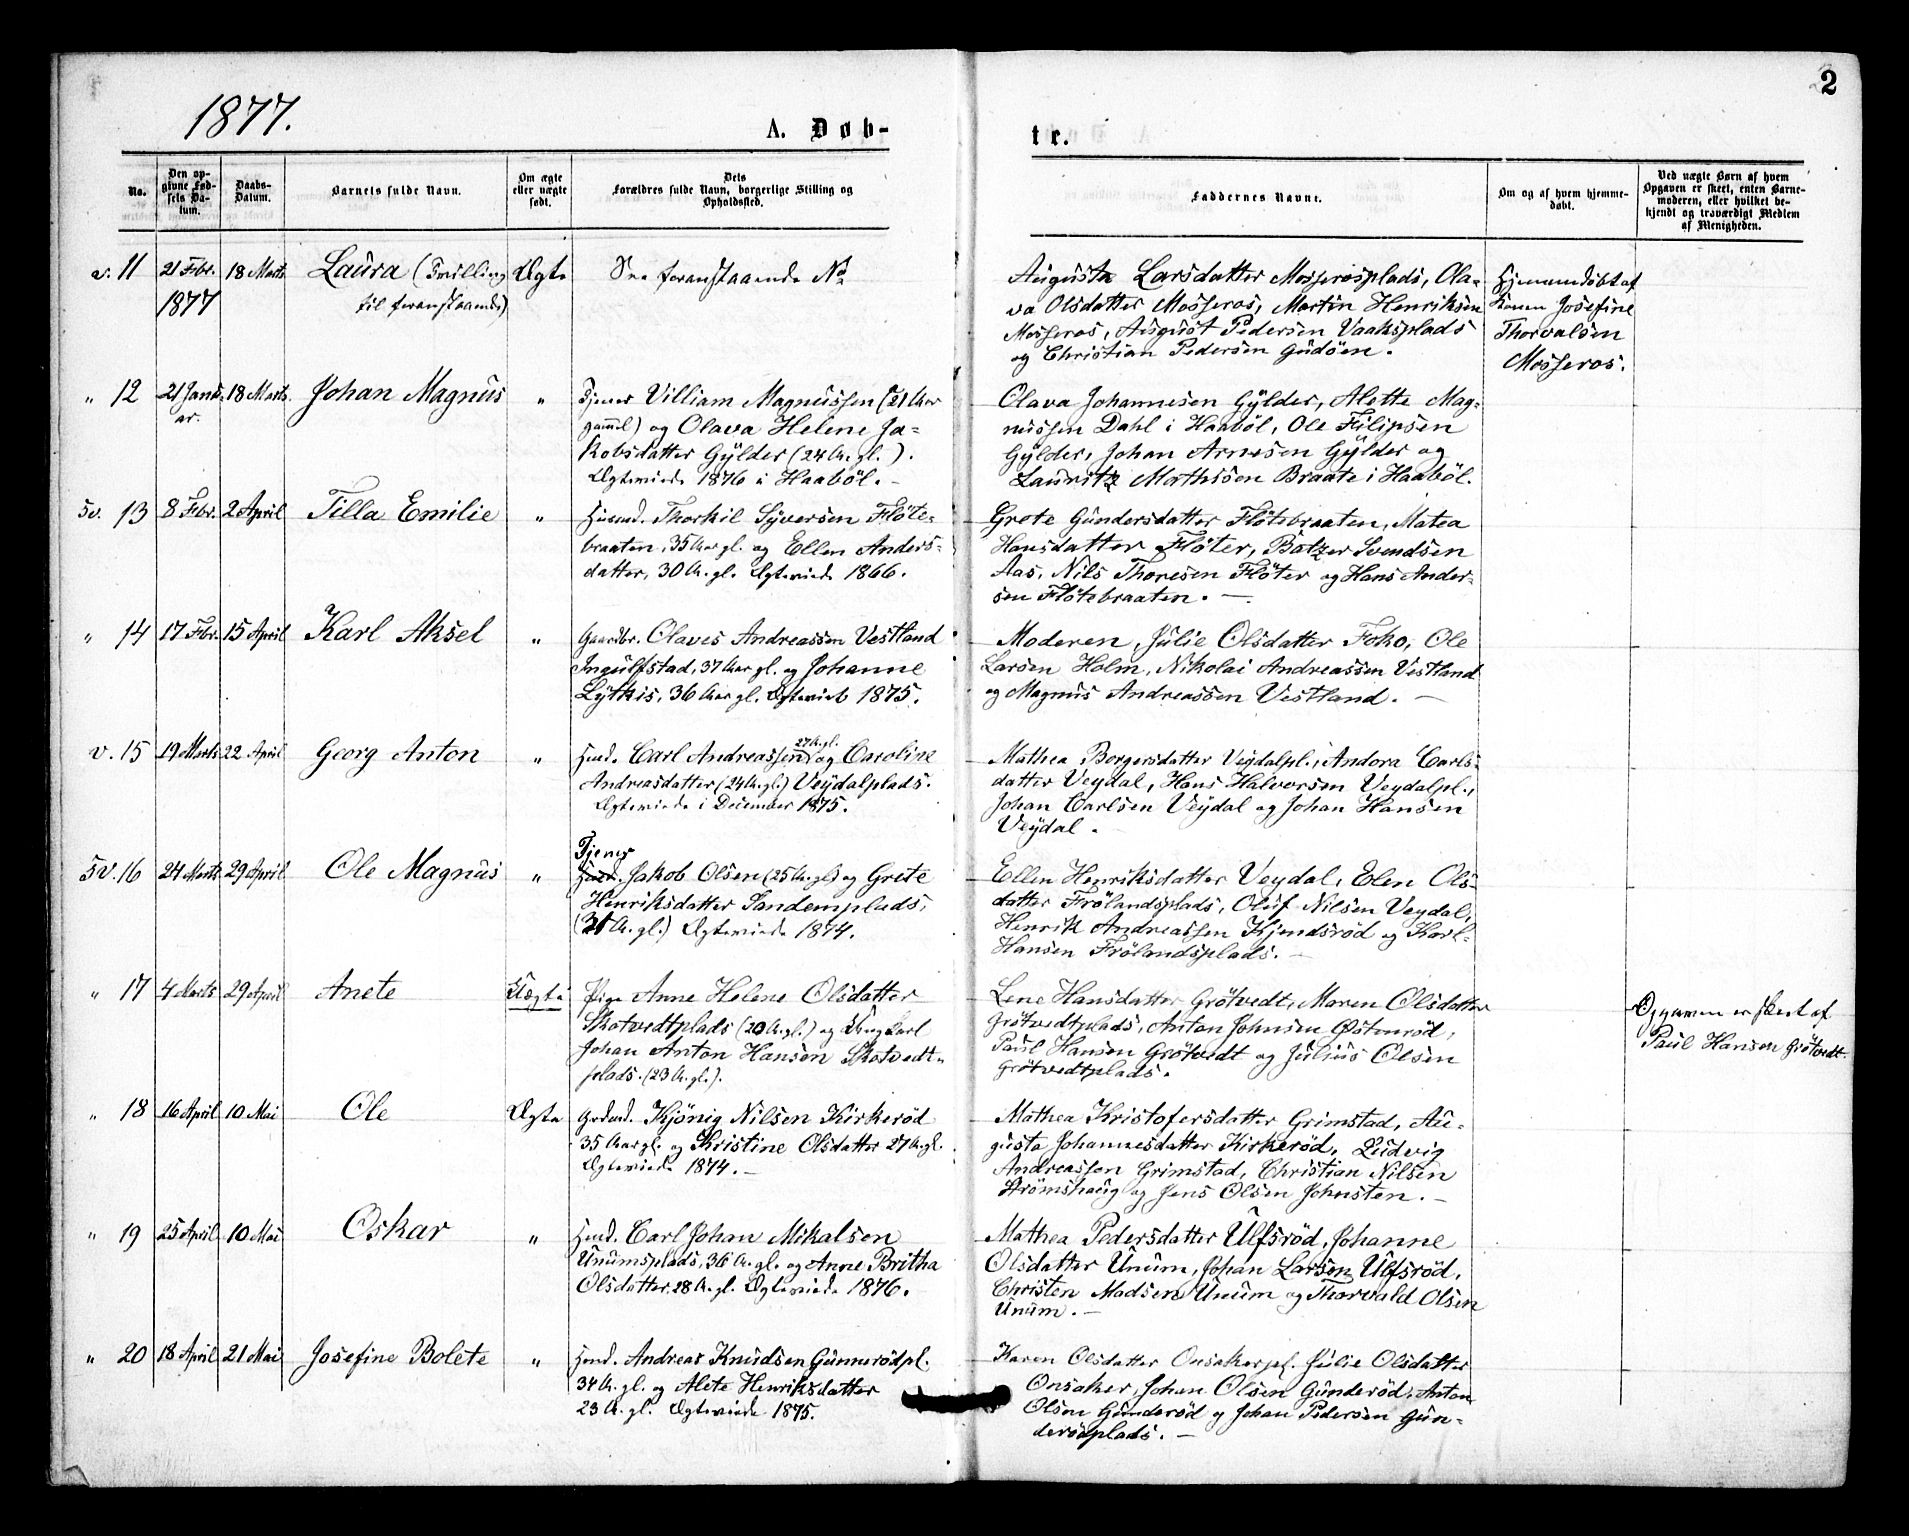 2
1877.
A. Døb-
te.
No.
Den op-
givne Fød-
sels Da-
tum.
Daabs-
Datum.
Barnets fulde Navn.
Om ægte
eller uægte
født.
Dets
Forældres fulde Navn, borgerlige Stilling og
Opholdssted.
Faddernes Navne.
Om og af hvem hjemme-
døbt.
Ved uægte Børn af hvem
Opgaven er skeet, enten Barne-
moderen, eller hvilket be-
kjendt og troværdigt Medlem
af Menigheden.
v. 11
21 Fbr.
1877
18 Marts
Laura (Tvilling
til foranstaaende)
Ægte
See foranstaaende No
Auguste Larsdatter Mosserosplads, Ola-
va Olsdatter Mosseros, Martin Henriksen
Mosseros, August Pedersen Vaaksplads
og Christian Pedersen Gudöen.
Hjemmedøbt af
Konen Josefine
Thorvalsen
Mosseros.
" 12
21 Janu-
ar.
18 Marts.
Johan Magnus
"
Tjener Villiam Magnussen (21 Aar
gammel) og Olava Helene Ja-
kobsdatter Gylder (24 A. gl.).
Ægteviede 1876 i Haaböl. -
Olava Johannesen Gylder, Alette Mag-
nussen Dahl i Haaböl, Ole Filipsen
Gylder, Johan Arnesen Gylder og
Lauritz Mathisen Braate i Haaböl.
5v. 13
8 Fbr.
2 April
Tilla Emilie
"
Husmd. Thorkil Syversen Flöte-
braaten, 35 Aar gl. og Ellen Anders-
datter, 30 A. gl. Ægteviede 1866.
Grete Gundersdatter Flötebraaten, Matea
Hansdatter Flöter, Batzer Svendsen
Aas, Nils Thoresen Flöter og Hans Ander-
sen Flötebraaten. -
" 14
17 Fbr.
15 April
Karl Aksel
"
Gaardbr. Olaves Andreassen Vestland
Ingulfstad, 37 Aar gl. og Johanne
Lytkis, 36 Aar gl. Ægteviet 1875.
Moderen, Julie Olsdatter Foko, Ole
Larsen Holm, Nikolai Andreassen Vestland
og Magnus Andreassen Vestland. -
v. 15
19 Marts
22 April
Georg Anton
"
27 A. gl.
Husmd. Carl Andreassen og Caroline
Andreasdatter (24 A. gl.) Veydalplads.
Ægteviede i December 1875.
Mathea Borgersdatter Veydalpl., Andora Carls-
datter Veydal, Hans Halvorsen Veydalpl.,
Johan Carlsen Veydal og Johan Hansen
Veydal.
5v. 16
24 Marts
29 April
Ole Magnus
"
Tjener
Husmd. Jakob Olsen (25 A. gl.) og Grete
Henriksdatter Sandemplads,
(31 A. gl.) Ægteviede 1874.
Ellen Henriksdatter Veydal, Elen Ols-
datter Frölandsplads, Oluf Nilsen Veydal,
Henrik Andreassen Kjendsrød og Karl
Hansen Frölandsplads. -
" 17
4 Marts
29 April
Anete
Uægte
Pige Anne Helene Olsdatter
Skotvedtplads (20 A. gl.) og Ungkarl
Johan Anton Hansen Skotvedt-
plads. (23 A. gl.).
Lene Hansdatter Grötvedt, Maren Olsdatter
Grötvedtplads, Anton Johnsen Østenrød,
Paul Hansen Grötvedt og Julius Olsen
Grötvedtplads.
Opgaven er skeet af
Paul Hansen Grötvedt.
" 18
16 April
10 Mai
Ole
Ægte
Grdmd. Kjönig Nilsen Kirkerød
35 Aar gl. og Kristine Olsdatter 27 A. gl.
Ægteviede 1874. -
Mathea Kristofersdatter Grimstad, Au-
gusta Johannesdatter Kirkerød, Ludvig
Andreassen Grimstad, Christian Nilsen
Strömshaug og Jens Olsen Johnsten. -
" 19
25 April
10 Mai
Oskar
"
Husmd. Carl Johan Mikalsen
Unumsplads, 36 A. gl. og Anne Britha
Olsdatter, 28 A. gl. Ægteviede 1876.
Mathea Pedersdatter Ulfsrød, Johanne
Olsdatter Unum, Johan Larsen Ulfsrød,
Christen Madsen Unum og Thorvald Olsen
Unum. -
" 20
18 April
21 Mai
Josefine Bolete
"
Husmd. Andreas Knudsen Gunnerödpl.
34 A. gl. og Alete Henriksdatter
23 A. gl. Ægteviede 1875.
Karen Olsdatter Onsakerpl. Julie Olsdatter
Onsaker, Johan Olsen Gunderød, Anton
Olsen Gunderød og Johan Pedersen Gun-
derødplads. -